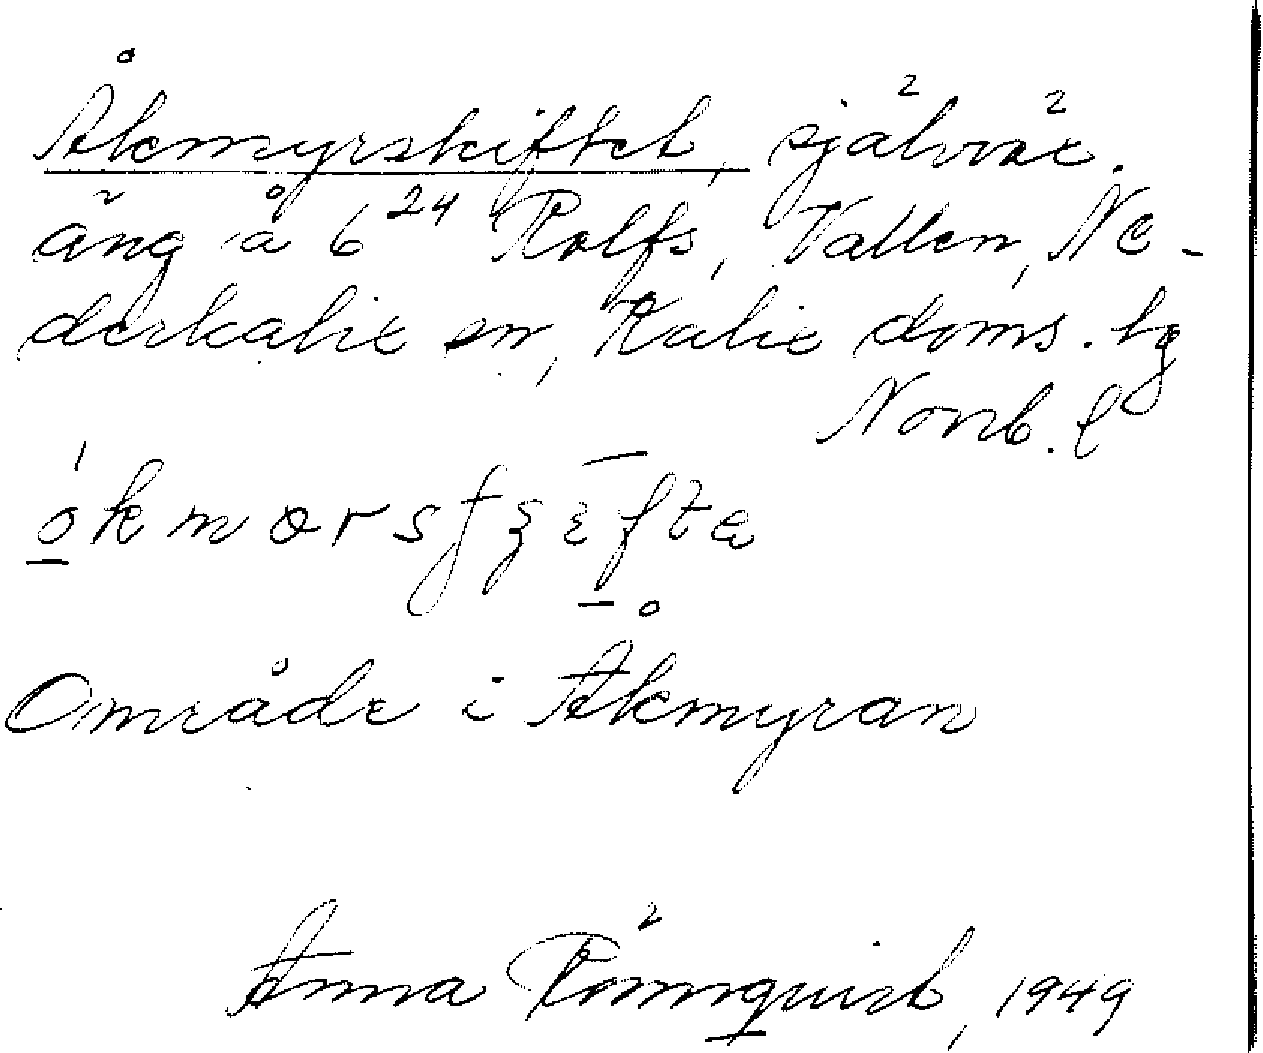 Åkmyrskiftet, självväx.
äng å 6²⁴ Rolfs, Vallen, Ne-
derkalix sn, Kalix doms. tg
Norrb. l
Område i Åkmyran
Anna Rönnquist, 1949